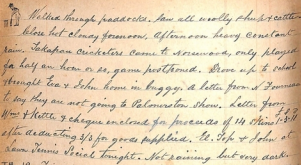 Walked through paddocks. Saw all woolly sheep & cattle
Close hot cloudy forenoon, afternoon heavy constant
rain. Takapau cricketers came to Norsewood, only played
for half an hour or so, game postponed. Drove up to school
brought Eva & John home in buggy. A letter from
to say they are not going to Palmerston show. Letter from
& Kettle & cheque enclosed for proceeds of 14
after deducting 3/3 for goods supplied. & John at
Lawn Tennis Social tonight. Not raining but very dark.